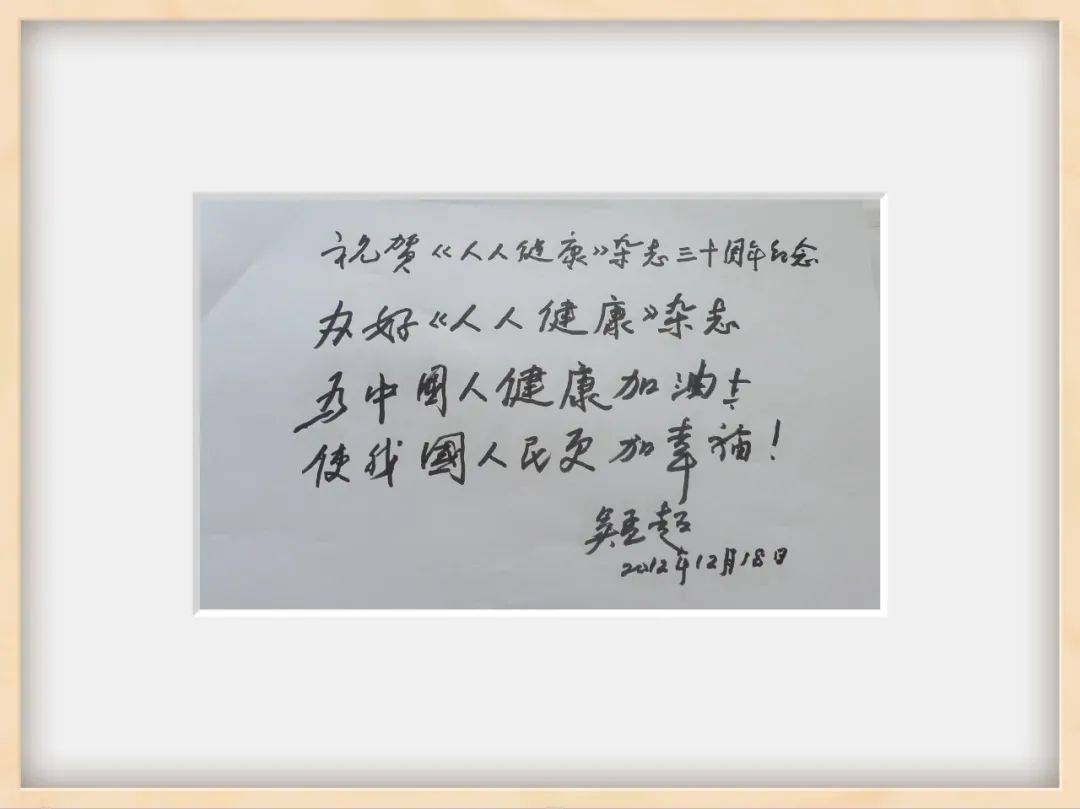 祝賀《人人健康》杂志三十周年纪念
办好《人人健康》杂志
为中國人健康加油！
使我國人民更加幸福！
吴孟超
2012年12月18日